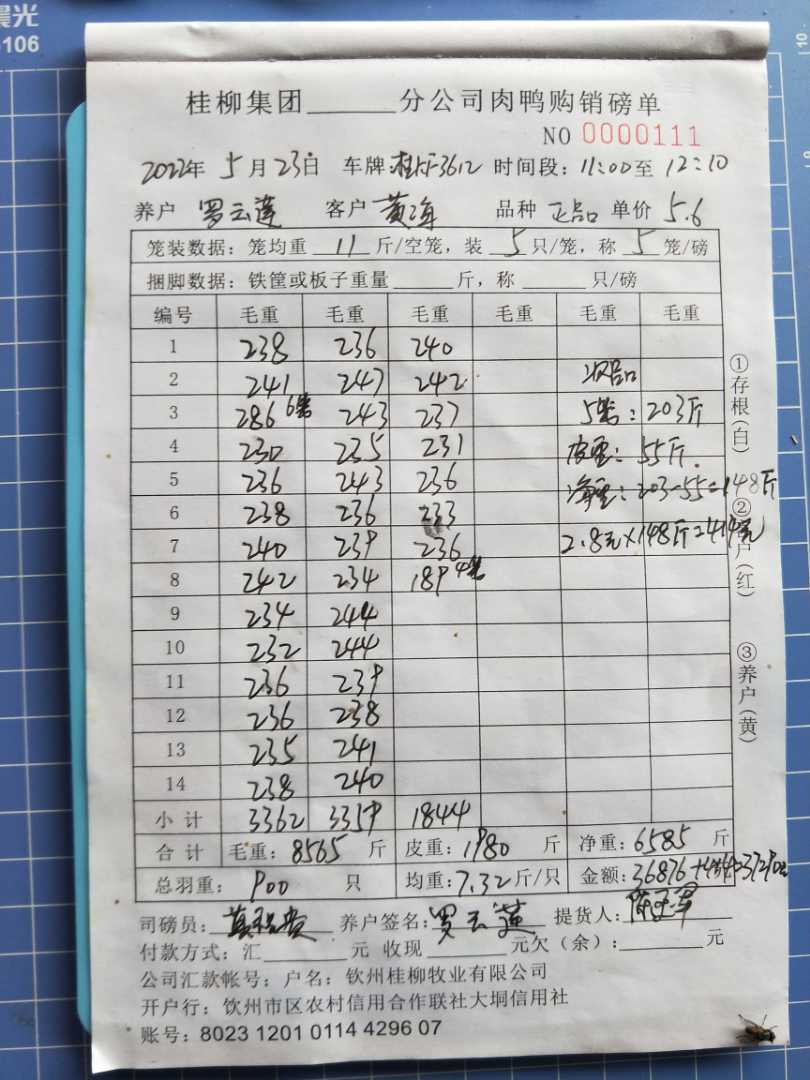 晨光
-106
10
桂柳集团______分公司肉鸭购销磅单
NO 0000111
2022年 5 月 23日 车牌: 3612 时间段: 11:00至 12:10
养户 罗云莲 客户 黄海 品种 正品 单价 5.6
笼装数据: 笼均重 11 斤/空笼, 装 5 只/笼, 称 5 笼/磅
捆脚数据: 铁筐或板子重量______斤, 称______只/磅
编号 毛重 毛重 毛重 毛重 毛重 毛重
1 238 236 240
2 241 247 242 次品
3 286 6笼 243 237 5笼: 203斤
4 230 235 231 皮重: 55斤.
5 236 243 236 净重: 203-55=148斤
6 238 236 233
7 240 239 236 2.8元×148斤=414元
8 242 234 189 4笼
9 234 244
10 232 244
11 236 239
12 236 238
13 235 241
14 238 240
小计 3362 3359 1844
合计 毛重: 8565 斤 皮重: 1980 斤 净重: 6585 斤
总羽重: 900 只 均重: 7.32斤/只 金额: 36876+414=37290元
①存根(白) ② 户(红) ③养户(黄)
司磅员: 养户签名: 罗云莲 提货人:
付款方式: 汇______元 收现______元欠(余):______元
公司汇款帐号; 户名: 钦州桂柳牧业有限公司
开户行: 钦州市区农村信用合作联社大垌信用社
账号: 8023 1201 0114 4296 07